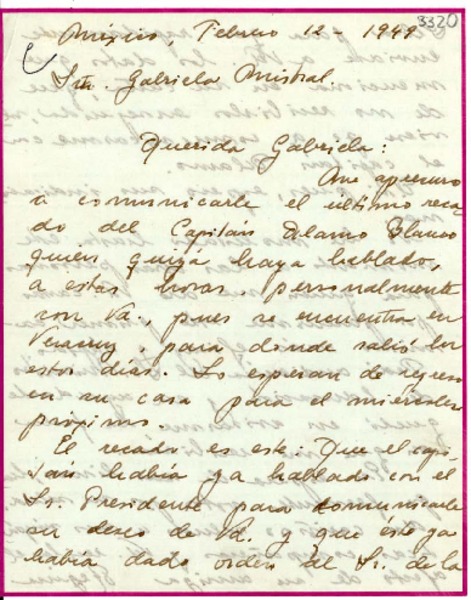 3320
México, Febrero 12 - 1949
Srta. Gabriela Mistral.
Querida Gabriela:
Me apresuro
a comunicarle el último reca-
do del Capitán Alamo Blanco
quien quizá haya hablado,
a estas horas, personalmente
con Ud., pues se encuentra en
Veracruz, para donde salió en
estos días. Lo esperan de regreso
en su casa para el miércoles
próximo.
El recado es este: Que el capi-
tán había ya hablado con el
Sr. Presidente para comunicarle
su deseo de Ud. y que éste ya
había dado orden al Sr. de la